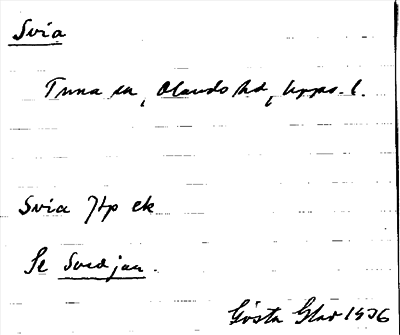 Svia
Tuna sn, Olands hd, Upps. l.
Svia 7/tp ek
Se Svedjan.
Gösta Glad 1936